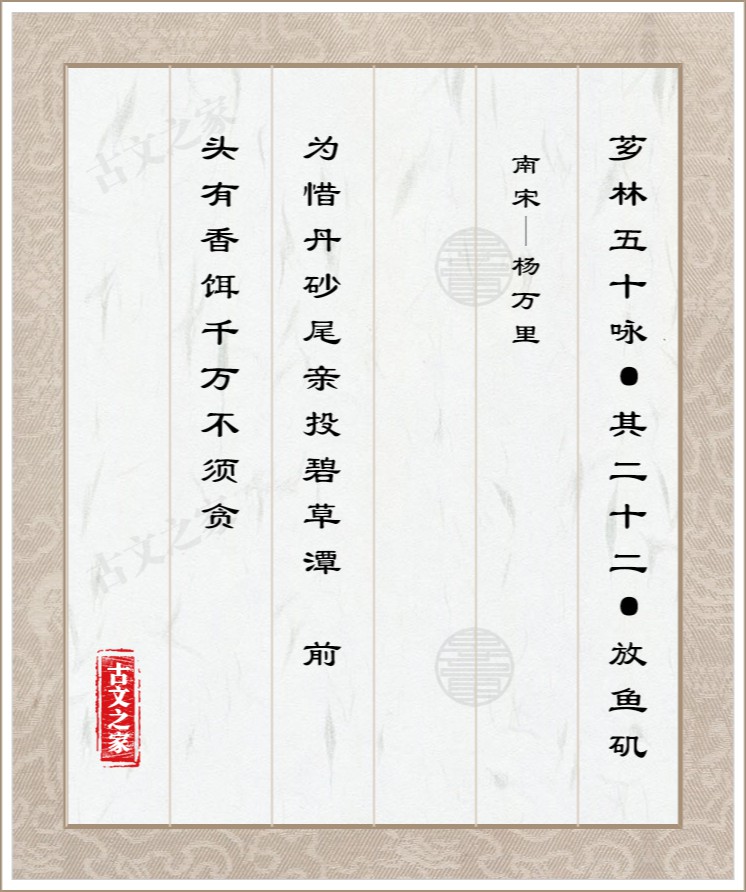 芗林五十咏●其二十二●放鱼矶
南宋—杨万里
为惜丹砂尾亲投碧草潭 前
头有香饵千万不须贪
古文之家
古文之家
古文之家